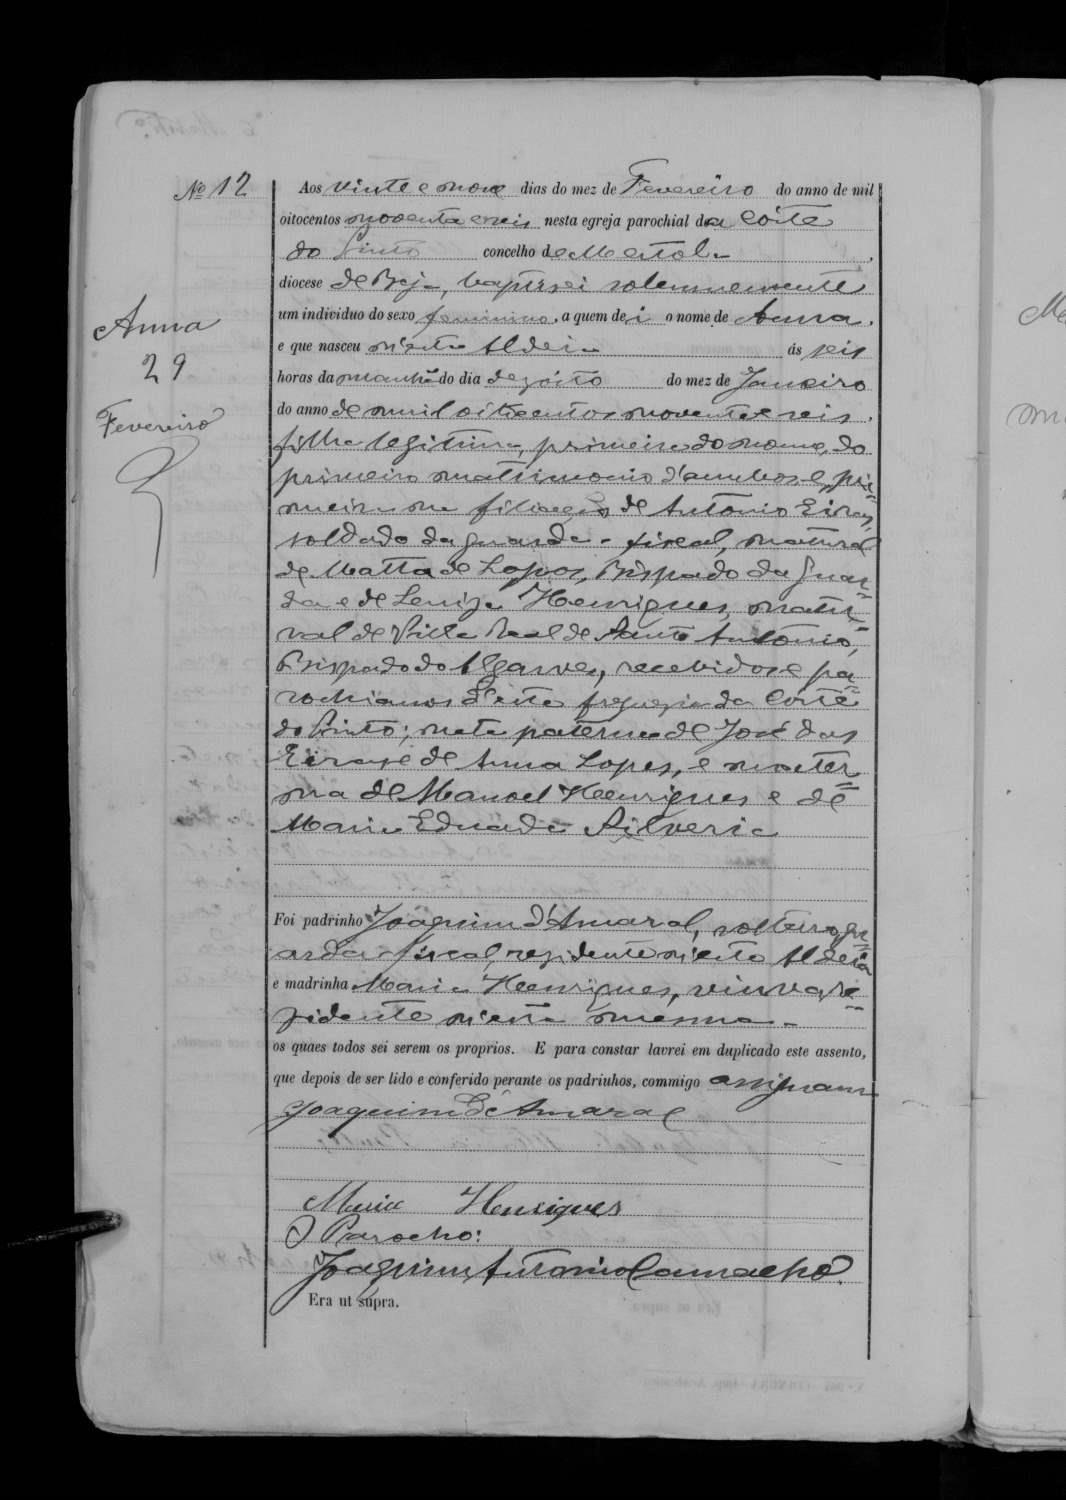 Nº 12
Anna
29
Fevereiro
Aos vinte e nove dias do mez de Fevereiro do anno de mil
oitocentos noventa e seis nesta egreja parochial da Côrte
do Pinto concelho de Mertola,
diocese de Beja, baptisei solemnemente
um individuo do sexo feminino, a quem dei o nome de Anna,
e que nasceu n'esta Aldeia ás seis
horas da manhã do dia dezoito do mez de Janeiro
do anno de mil oitocentos noventa e seis,
filha legitima, primeira do nome, do
primeiro matrimonio d'ambos e pri=
meira na filiação de Antonio Eiras,
soldado da guarda-fiscal, natural
de Matta de Lopos, Bispado da Guar=
da e de Luiza Henriques, natu=
ral de Villa Real de Santo Antonio,
Bispado do Algarve, recebidos e pa=
rochianos d'esta freguezia da Corte
do Pinto; neta paterna de José das
Eiras e de Anna Lopes, e mater=
na de Manoel Henriques e de
Maria Eduarda Silveria
Foi padrinho Joaquim d'Amaral, solteiro, gu=
arda-fiscal, residente n'esta Aldeia
e madrinha Maria Henriques, viuva, re=
zidente n'esta mesma
os quaes todos sei serem os proprios. E para constar lavrei em duplicado este assento,
que depois de ser lido e conferido perante os padrinhos, commigo assignam
Joaquim d'Amaral
Maria Henriques
O Parocho:
Joaquim Antonio Camacho.
Era ut supra.